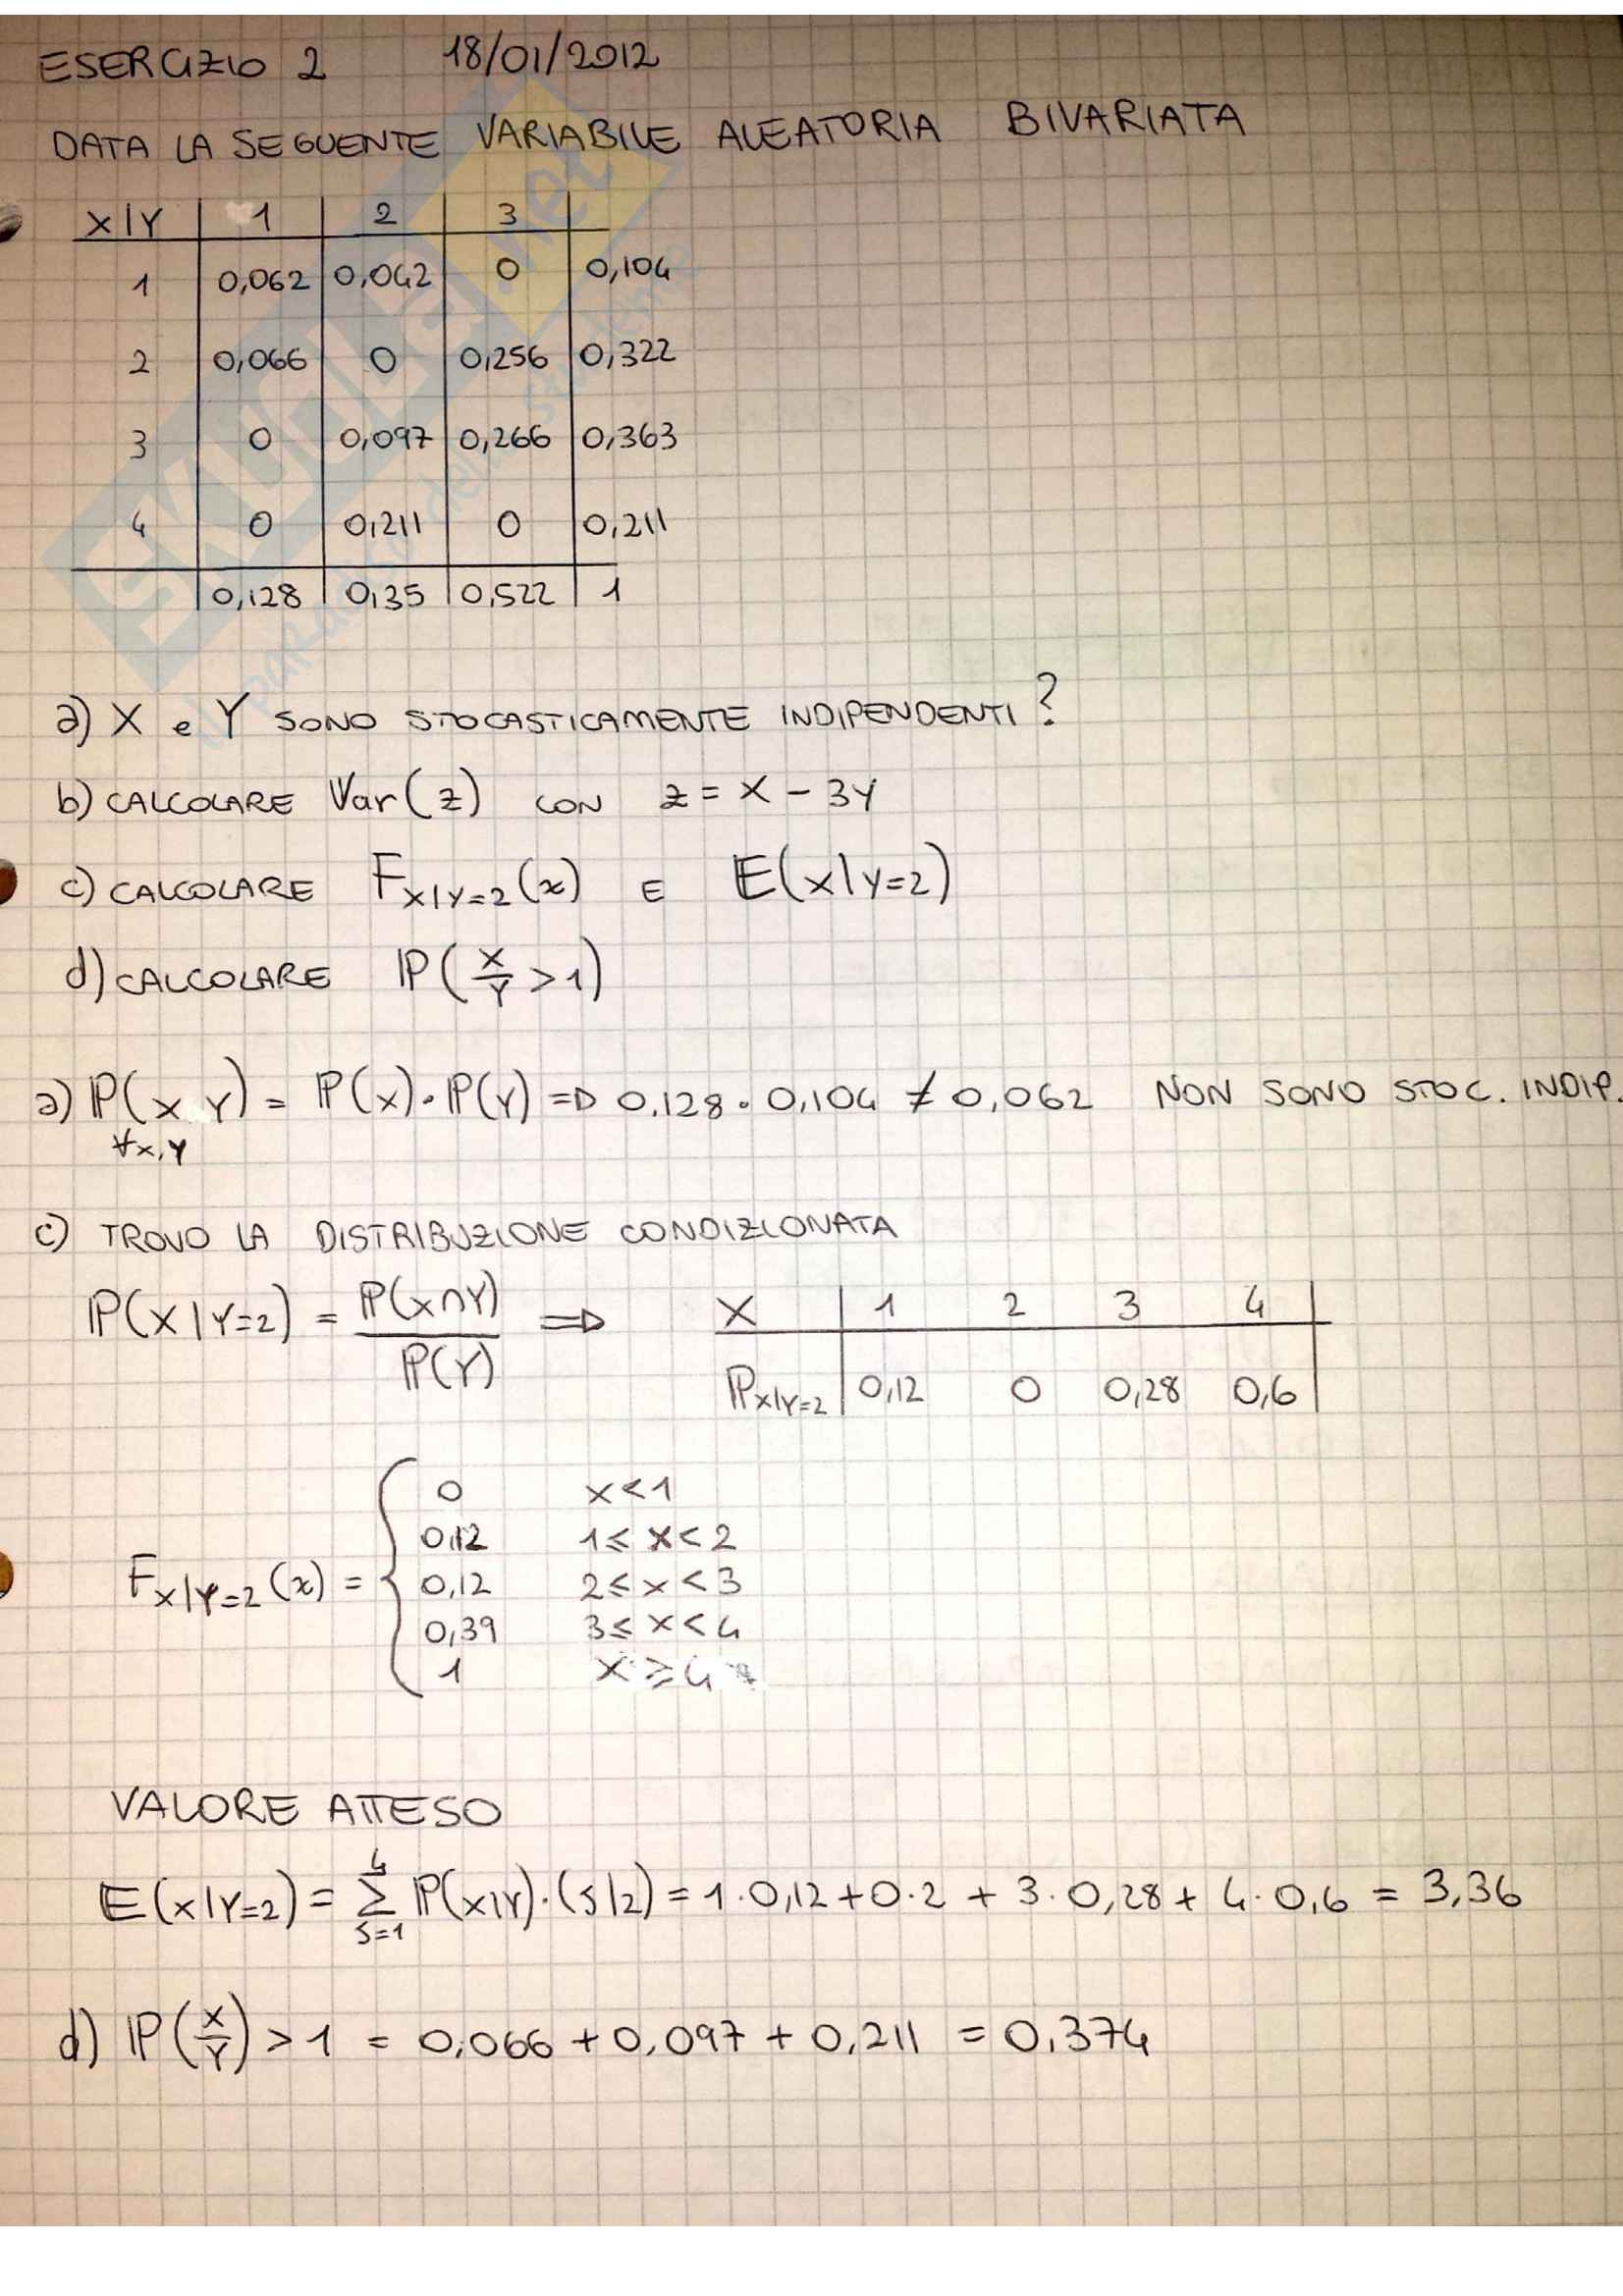 ESERCIZIO 2 18/01/2012
DATA LA SEGUENTE VARIABILE ALEATORIA BIVARIATA
X|Y 1 2 3
1 0,062 0,042 0 0,104
2 0,066 0 0,256 0,322
3 0 0,097 0,266 0,363
4 0 0,211 0 0,211
0,128 0,35 0,522 1
a) X e Y SONO STOCASTICAMENTE INDIPENDENTI?
b) CALCOLARE Var(z) CON z = X - 3Y
c) CALCOLARE F_{X|Y=2}(x) E E(X|Y=2)
d) CALCOLARE P(X/Y > 1)
a) P(X Y) = P(X) · P(Y) => 0,128 · 0,104 ≠ 0,062 NON SONO STOC. INDIP.
∀x,y
c) TROVO LA DISTRIBUZIONE CONDIZIONATA
P(X|Y=2) = P(X∩Y)/P(Y) => X 1 2 3 4
P_{X|Y=2} 0,12 0 0,28 0,6
0 x<1
0,12 1≤x<2
F_{X|Y=2}(x) = { 0,12 2≤x<3
0,39 3≤x<4
1 x≥4
VALORE ATTESO
E(X|Y=2) = Σ_{S=1}^{4} P(X|Y)·(S|2) = 1·0,12+0·2 + 3·0,28 + 4·0,6 = 3,36
d) P(X/Y) > 1 = 0,066 + 0,097 + 0,211 = 0,374